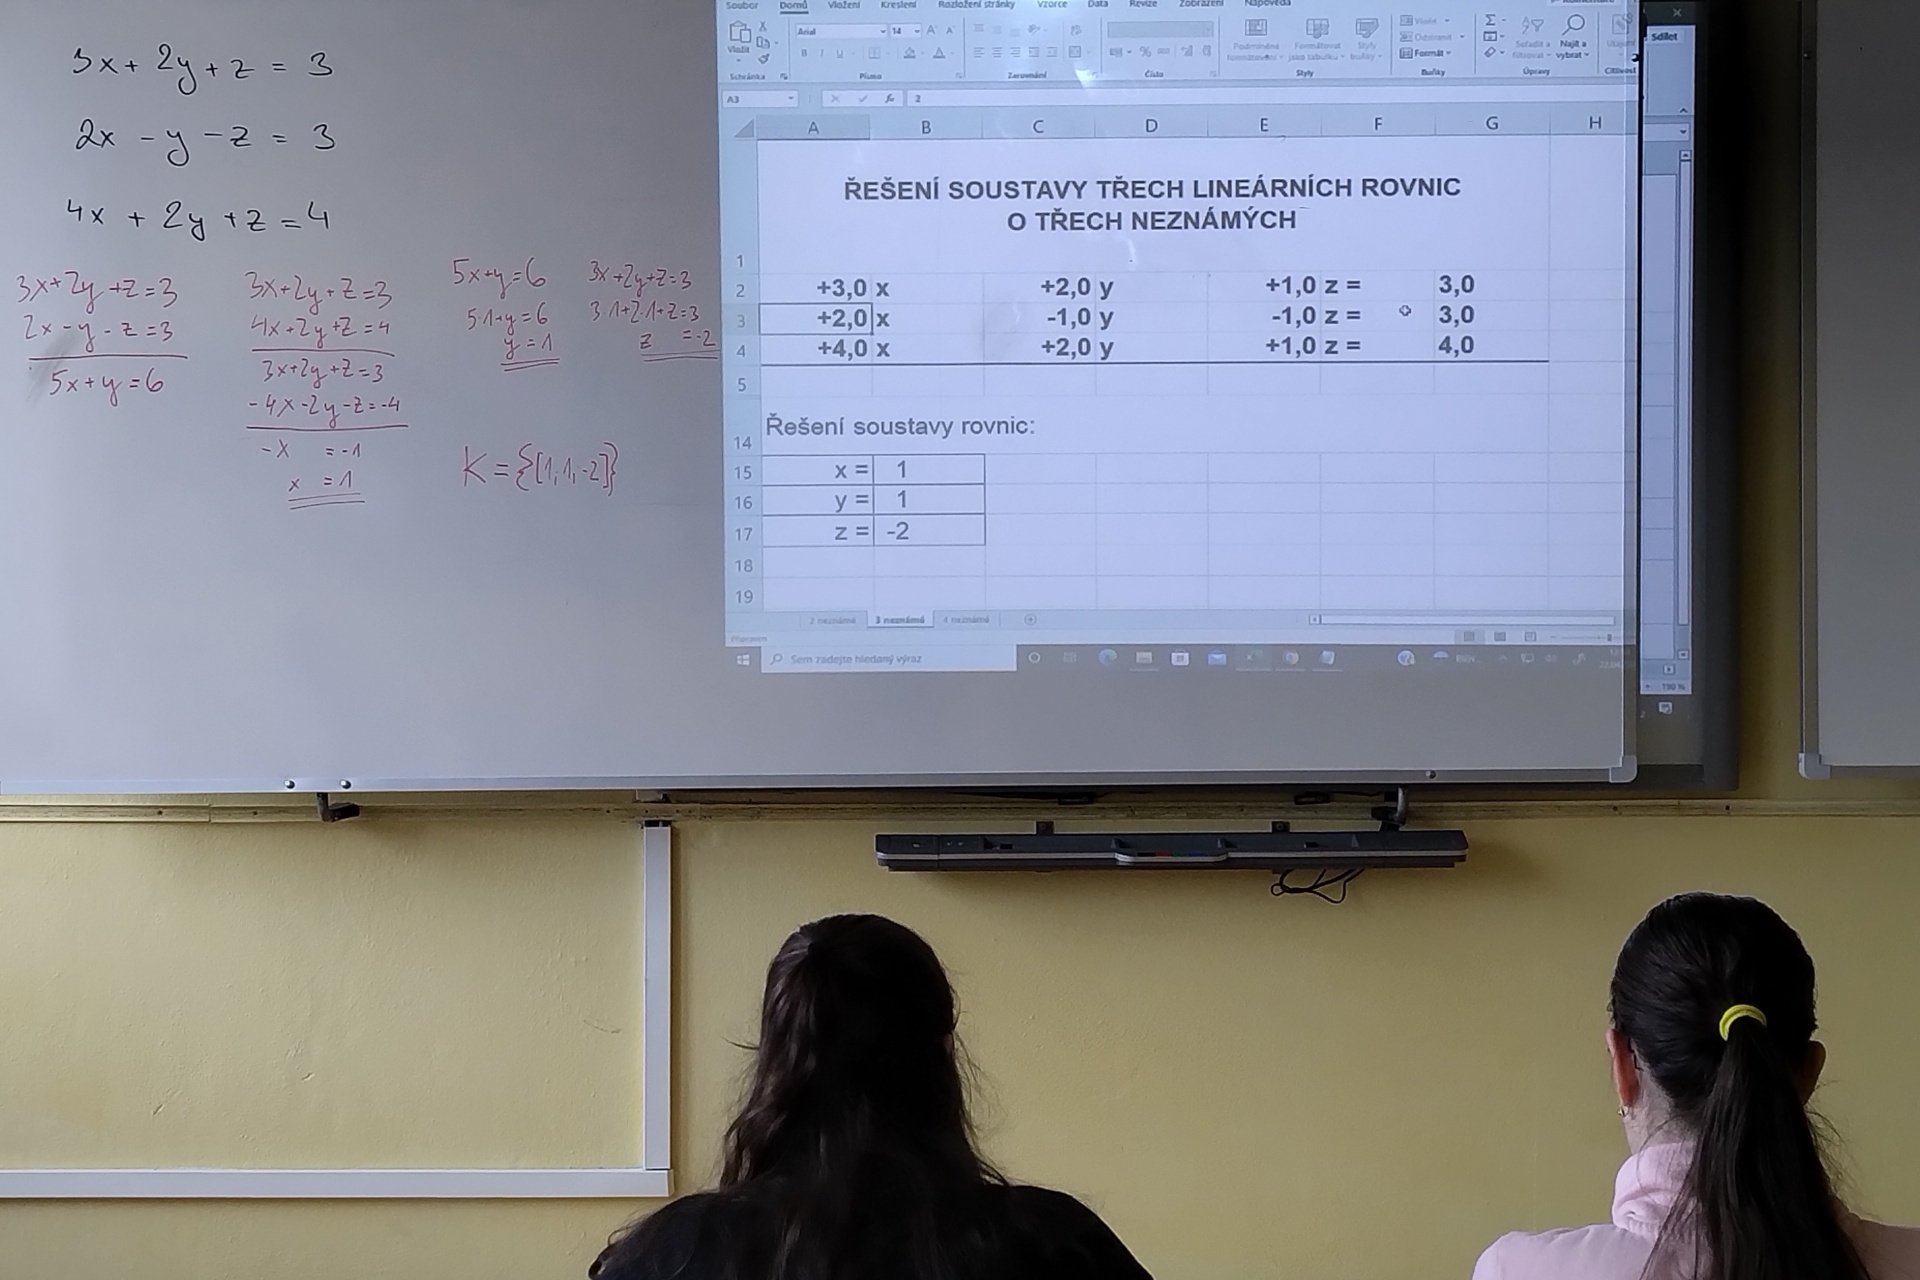 3x + 2y + z = 3
2x - y - z = 3
4x + 2y + z = 4
3x+2y+z=3
2x-y-z=3
5x+y=6
3x+2y+z=3
4x+2y+z=4
3x+2y+z=3
-4x-2y-z=-4
-x = -1
x = 1
5x+y=6
5·1+y=6
y=1
3x+2y+z=3
3·1+2·1+z=3
z = -2
K={[1,1,-2]}
Soubor Domů Vložení Kreslení Rozložení stránky Vzorce Data Revize Zobrazení Nápověda
Sdílet
Vložit
Arial 14
Podmíněné formátování
Formátovat jako tabulku
Styly buňky
Vložit
Odstranit
Formát
Seřadit a filtrovat
Najít a vybrat
Schránka Písmo Zarovnání Číslo Styly Buňky Úpravy Citlivost
A3 fx 2
A B C D E F G H
ŘEŠENÍ SOUSTAVY TŘECH LINEÁRNÍCH ROVNIC
O TŘECH NEZNÁMÝCH
1
2 +3,0 x +2,0 y +1,0 z = 3,0
3 +2,0 x -1,0 y -1,0 z = 3,0
4 +4,0 x +2,0 y +1,0 z = 4,0
5
14 Řešení soustavy rovnic:
15 x = 1
16 y = 1
17 z = -2
18
19
2 neznámé 3 neznámé 4 neznámé
Připraven
Sem zadejte hledaný výraz
190 %